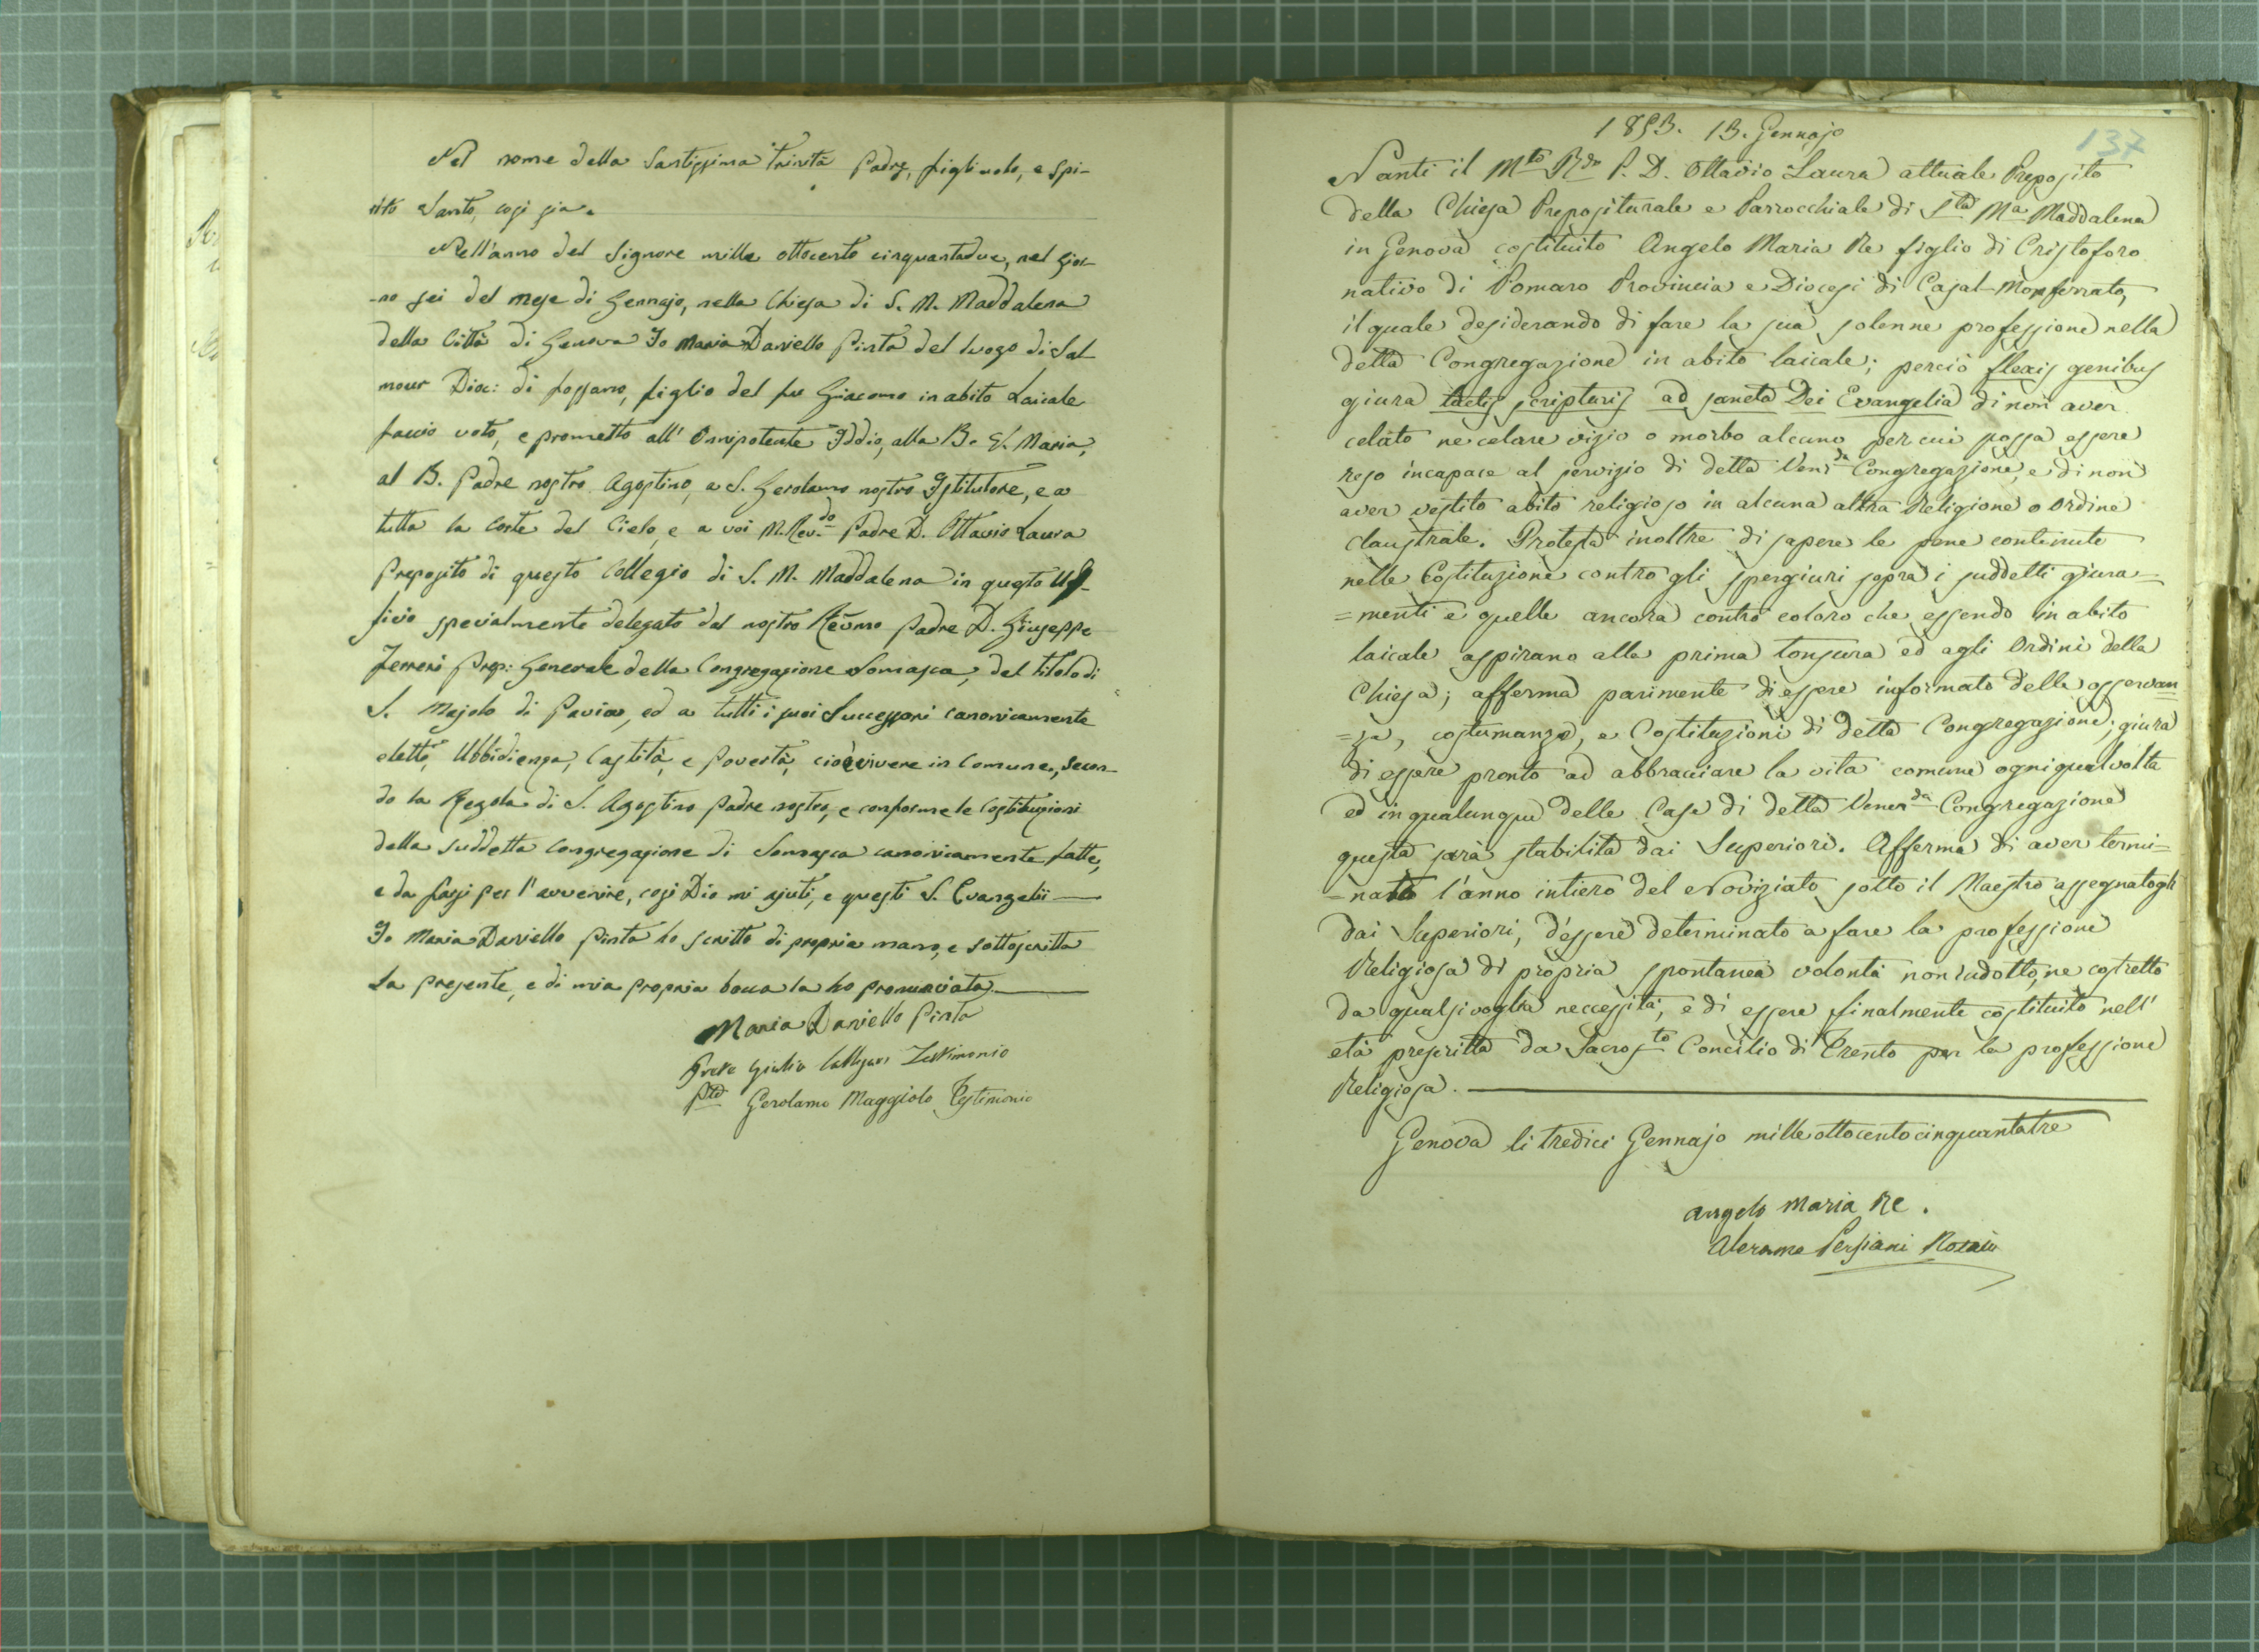 Nel nome della Santissima Trinità Padre, figliuolo, e Spi-
rito Santo, così sia.
Nell'anno del Signore mille ottocento cinquantadue, nel gior-
-no sei del mese di Gennajo, nella Chiesa di S. M. Maddalena
della Città di Genova Io Maria Daniello Pinta del luogo di Sal
mour Dioc: di Fossano, figlio del fu Giacomo in abito Laicale
faccio voto, e prometto all' Onnipotente Iddio, alla B. V. Maria,
al B. Padre nostro Agostino, a S. Gerolamo nostro Istitutore, e a
tutta la Corte del Cielo, e a voi M. Rev.do Padre D. Ottavio Laura
Preposito di questo Collegio di S. M. Maddalena in questo Uf-
ficio specialmente delegato dal nostro Rev̄mo Padre D. Giuseppe
Ferreri Prep: Generale della Congregazione Somasca, del titolo di
S. Majolo di Pavia, ed a tutti i suoi Successori canonicamente
eletti, Ubbidienza, Castità, e Povertà, cioè vivere in Comune, secon-
do la Regola di S. Agostino Padre nostro, e conforme le Costituzioni
della suddetta Congregazione di Somasca canonicamente fatte,
e da farsi per l'avvenire, così Dio mi ajuti, e questi S. Evangelii
Io Maria Daniello Pinta ho scritto di propria mano, e sottoscritta
la presente, e di mia propria bocca la ho pronunciata.
Maria Daniello Pinta
Prete Giulio Testimonio
Gerolamo Maggiolo Testimonio
137
1853. 13. Gennajo
Nanti il Mto Rdo P. D. Ottavio Laura attuale Preposito
della Chiesa Prepositurale e Parrocchiale di Sta Ma Maddalena
in Genova costituito Angelo Maria Re figlio di Cristoforo
nativo di Pomaro Provincia e Diocesi di Casal-Monferrato,
il quale desiderando di fare la sua solenne professione nella
detta Congregazione in abito laicale; perciò flexis genibus
giura tactis scripturis ad sancta Dei Evangelia di non aver
celato ne celare vizio o morbo alcuno per cui possa essere
reso incapace al servizio di detta Venda Congregazione, e di non
aver vestito abito religioso in alcuna altra Religione o Ordine
claustrale. Protesta inoltre di sapere le pene contenute
nelle Costituzione contro gli spergiuri sopra i suddetti giura-
=menti e quelle ancora contro coloro che essendo in abito
laicale aspirano alla prima tonsura ed agli Ordini della
Chiesa; afferma parimente di essere informato delle osservan
=za, costumanze, e Costituzioni di detta Congregazione; giura
di essere pronto ad abbracciare la vita comune ogniqualvolta
ed in qualunque delle Case di detta Venerda Congregazione
questa sarà stabilita dai Superiori. Afferma di aver termi=
=nato l'anno intiero del Noviziato sotto il Maestro assegnatogli
dai Superiori, d'essere determinato a fare la professione
Religiosa di propria spontanea volontà non indotto, ne costretto
da qualsivoglia neccessità, e di essere finalmente costituito nell'
età prescritta da Sacrosto Concilio di Trento per la professione
Religiosa.
Genova li tredici Gennajo mille ottocento cinquantatre
Angelo Maria Re.
Alerame Persiani Notaio